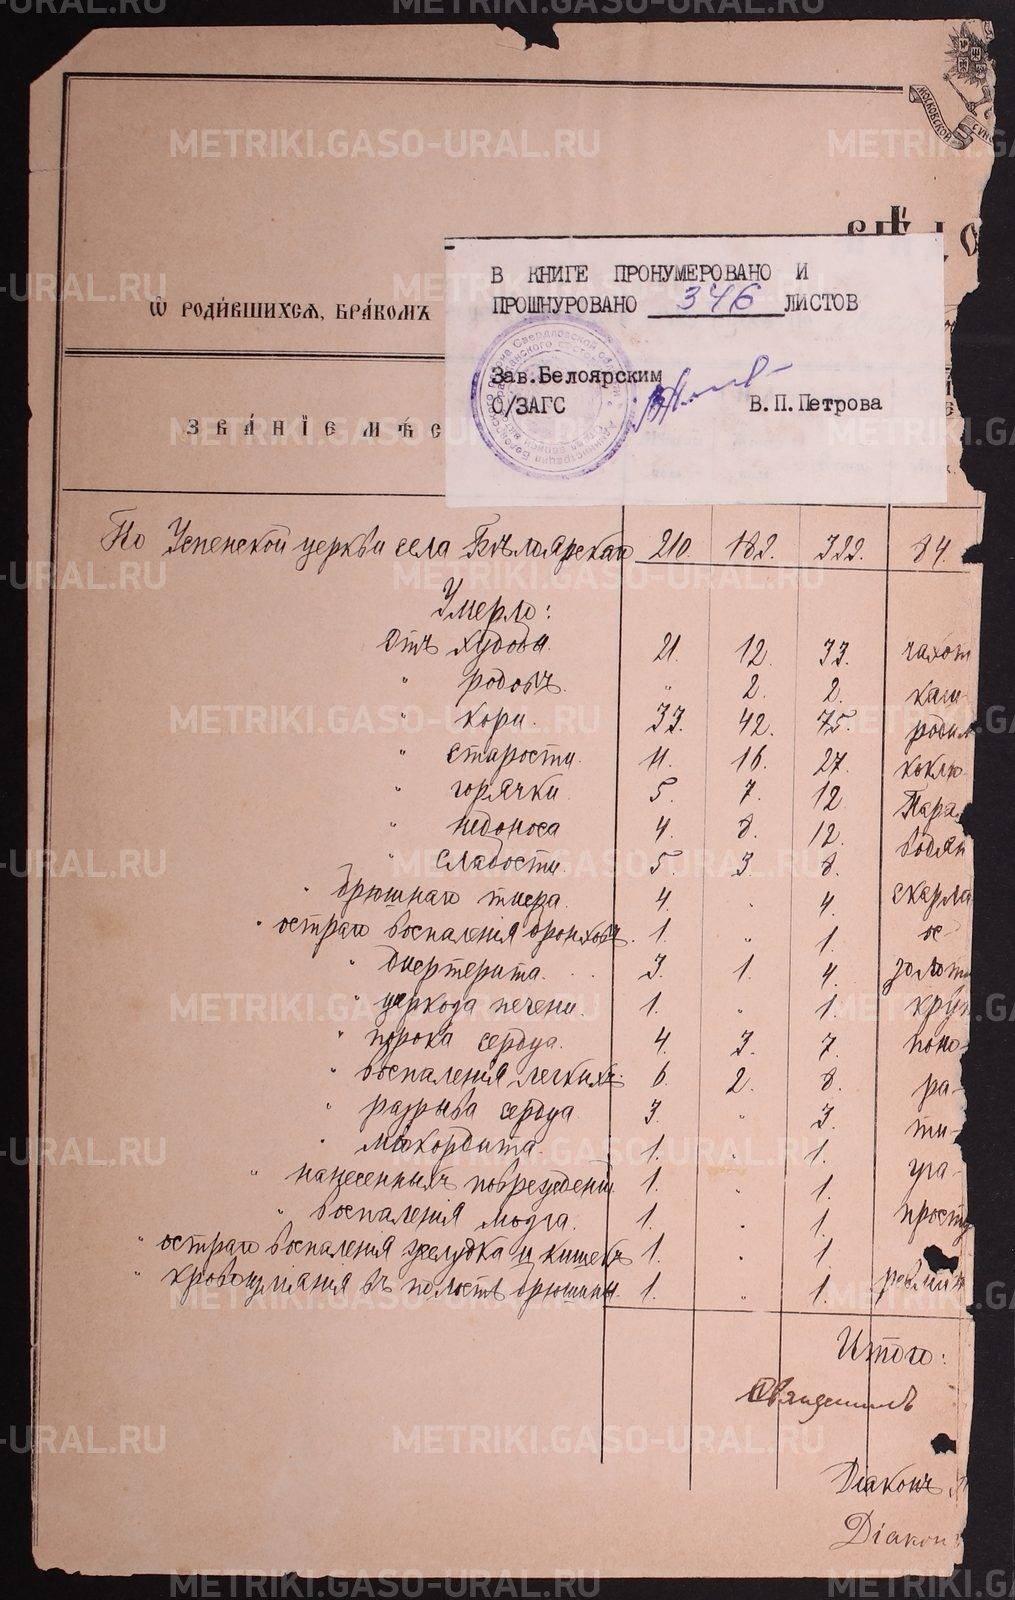 МОСКОВСКОЙ
Ѡ РОДИ́ВШИХСѦ, БРА́КОМЪ
ЗВА́НІЕ МѢС
В КНИГЕ ПРОНУМЕРОВАНО И
ПРОШНУРОВАНО 346 ЛИСТОВ
Зав.Белоярским
О/ЗАГС В.П.Петрова
По Успенской церкви села Бѣлоярскаго 210. 182. 322. 84.
Умерло:
Отъ худобы. 21. 12. 33. чахот
" родовъ. " 2. 2.
" кори. 33. 42. 75. родим
" старости. 11. 16. 27. коклю
" горячки 5. 7. 12. Пара
" недоноса 4. 8. 12. водян
" слабости. 5. 3. 8. скарла
" брюшнаго тифа. 4. " 4. ос-
" остраго воспаления бронховъ. 1. " 1. золоти
" дифтерита. 3. 1. 4. круп
" цирроза печени. 1. " 1. поно-
" порока сердца. 4. 3. 7. ра-
" воспаления легкихъ. 6. 2. 8. ти-
" разрыва сердца 3. " 3.
" міокардита. 1. " 1. уга-
" нанесенныхъ поврежденій. 1. " 1. просту
" воспаленія мозга. 1. " 1.
" остраго воспаления желудка и кишекъ 1. " 1.
" кровоизліянія въ полость брюшины. 1. " 1.
Итого:
Священникъ
Діаконъ
Діакон
METRIKI.GASO-URAL.RU